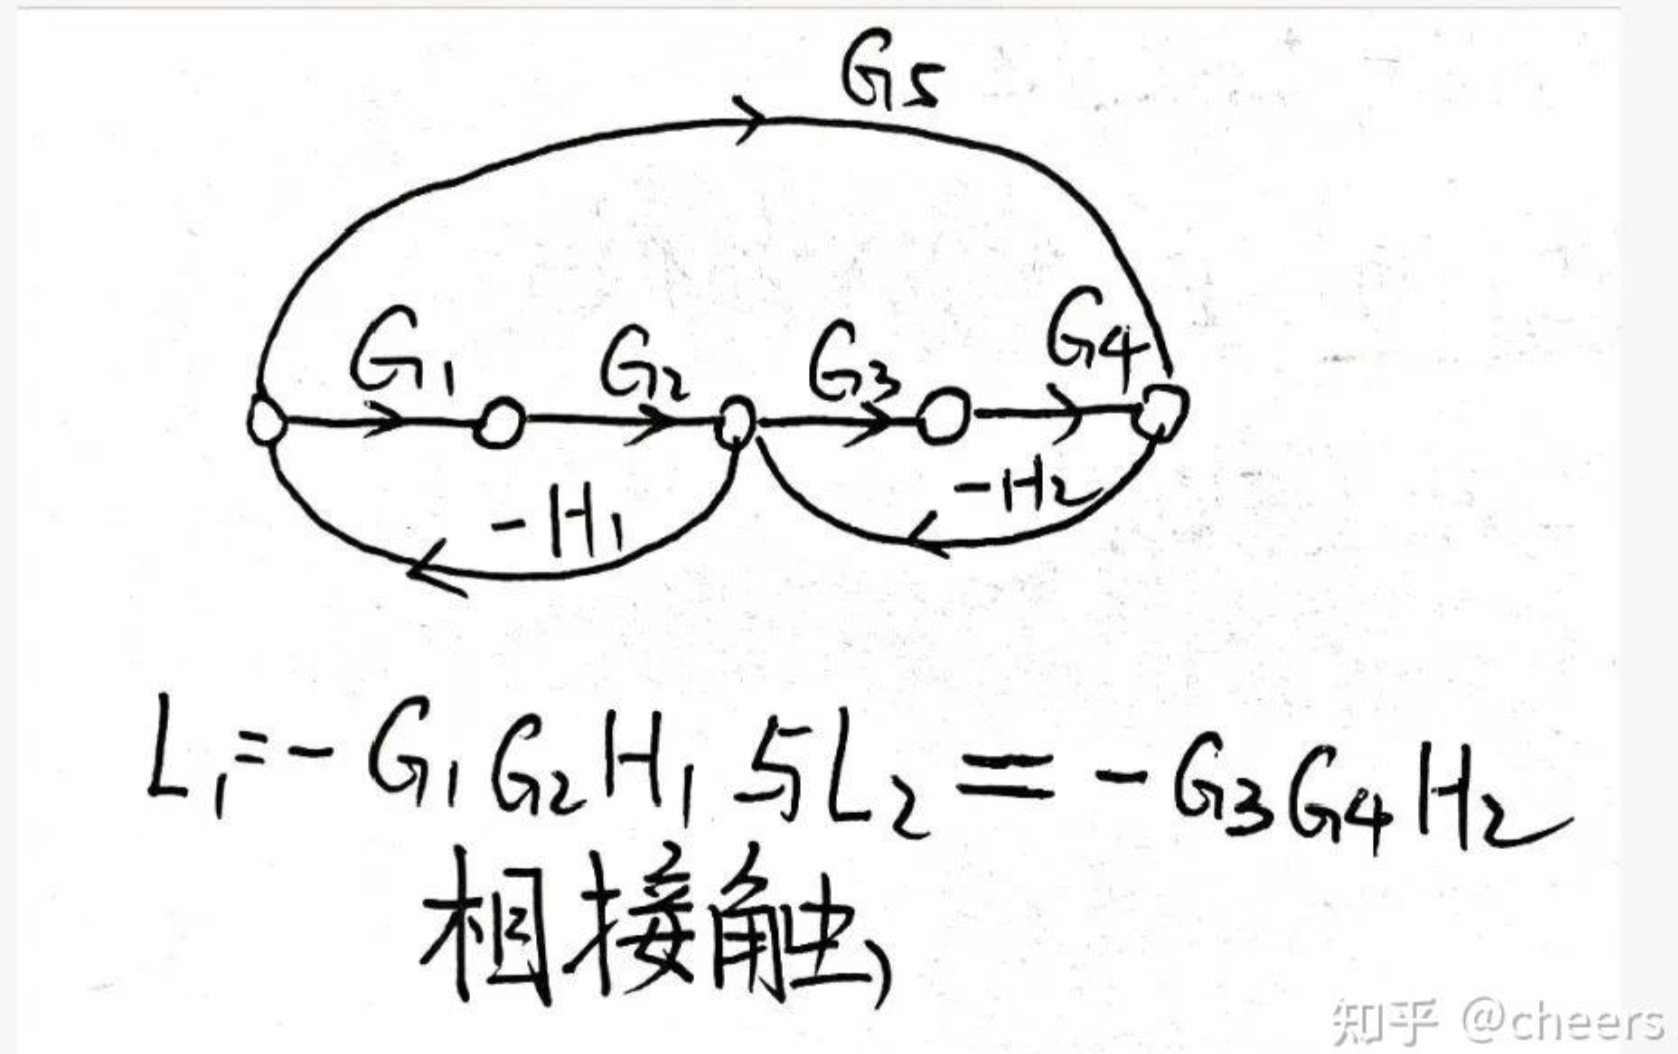 G5
G1 G2 G3 G4
-H1 -H2
L1=-G1G2H1与L2=-G3G4H2
相接触,
知乎 @cheers